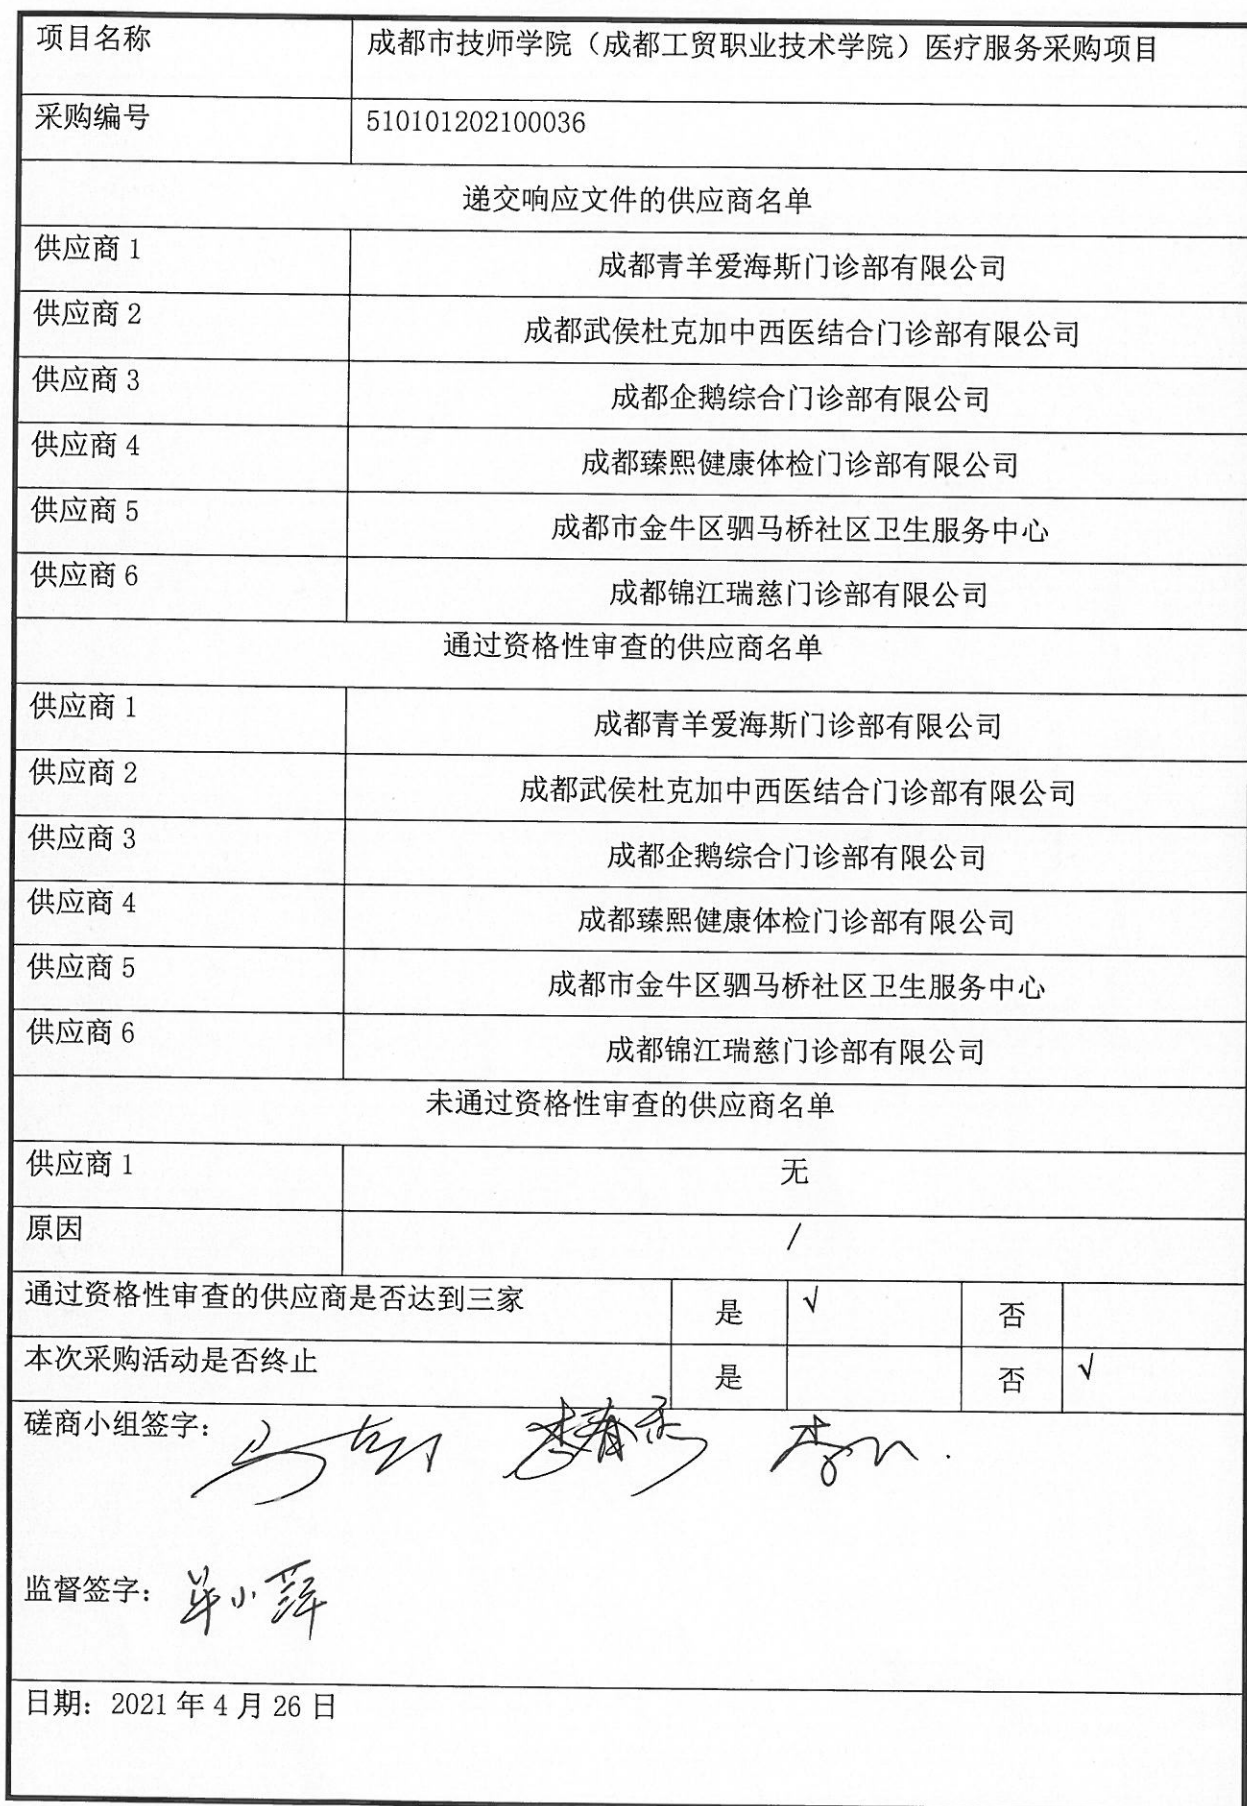 项目名称 成都市技师学院（成都工贸职业技术学院）医疗服务采购项目
采购编号 510101202100036
递交响应文件的供应商名单
供应商 1 成都青羊爱海斯门诊部有限公司
供应商 2 成都武侯杜克加中西医结合门诊部有限公司
供应商 3 成都企鹅综合门诊部有限公司
供应商 4 成都臻熙健康体检门诊部有限公司
供应商 5 成都市金牛区驷马桥社区卫生服务中心
供应商 6 成都锦江瑞慈门诊部有限公司
通过资格性审查的供应商名单
供应商 1 成都青羊爱海斯门诊部有限公司
供应商 2 成都武侯杜克加中西医结合门诊部有限公司
供应商 3 成都企鹅综合门诊部有限公司
供应商 4 成都臻熙健康体检门诊部有限公司
供应商 5 成都市金牛区驷马桥社区卫生服务中心
供应商 6 成都锦江瑞慈门诊部有限公司
未通过资格性审查的供应商名单
供应商 1 无
原因 /
通过资格性审查的供应商是否达到三家 是 √ 否
本次采购活动是否终止 是 否 √
磋商小组签字：
监督签字：
日期：2021 年 4 月 26 日